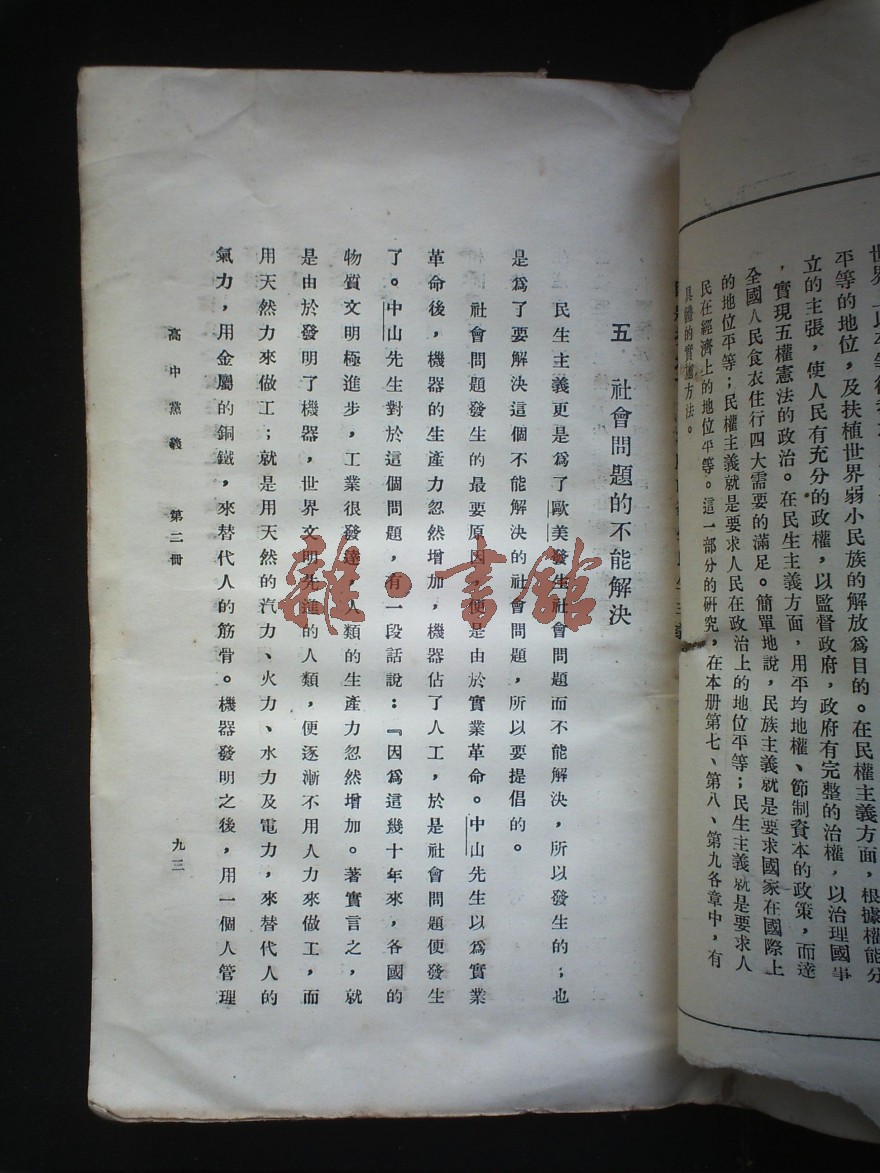 世界
平等的地位，及扶植世界弱小民族的解放爲目的。在民權主義方面，根據權能分
立的主張，使人民有充分的政權，以監督政府，政府有完整的治權，以治理國事
，實現五權憲法的政治。在民生主義方面，用平均地權、節制資本的政策，而達
全國人民食衣住行四大需要的滿足。簡單地說，民族主義就是要求國家在國際上
的地位平等；民權主義就是要求人民在政治上的地位平等；民生主義就是要求人
民在經濟上的地位平等。這一部分的研究，在本册第七、第八、第九各章中，有
具體的實施方法。
五 社會問題的不能解決
民生主義更是爲了歐美發生社會問題而不能解決，所以發生的；也
是爲了要解決這個不能解決的社會問題，所以要提倡的。
社會問題發生的最要原因，便是由於實業革命。中山先生以爲實業
革命後，機器的生產力忽然增加，機器佔了人工，於是社會問題便發生
了。中山先生對於這個問題，有一段話說：『因爲這幾十年來，各國的
物質文明極進步，工業很發達，人類的生產力忽然增加。著實言之，就
是由於發明了機器，世界文明先進的人類，便逐漸不用人力來做工，而
用天然力來做工；就是用天然的汽力、火力、水力及電力，來替代人的
氣力，用金屬的銅鐵，來替代人的筋骨。機器發明之後，用一個人管理
高中黨義 第二冊
九三
雜·書館